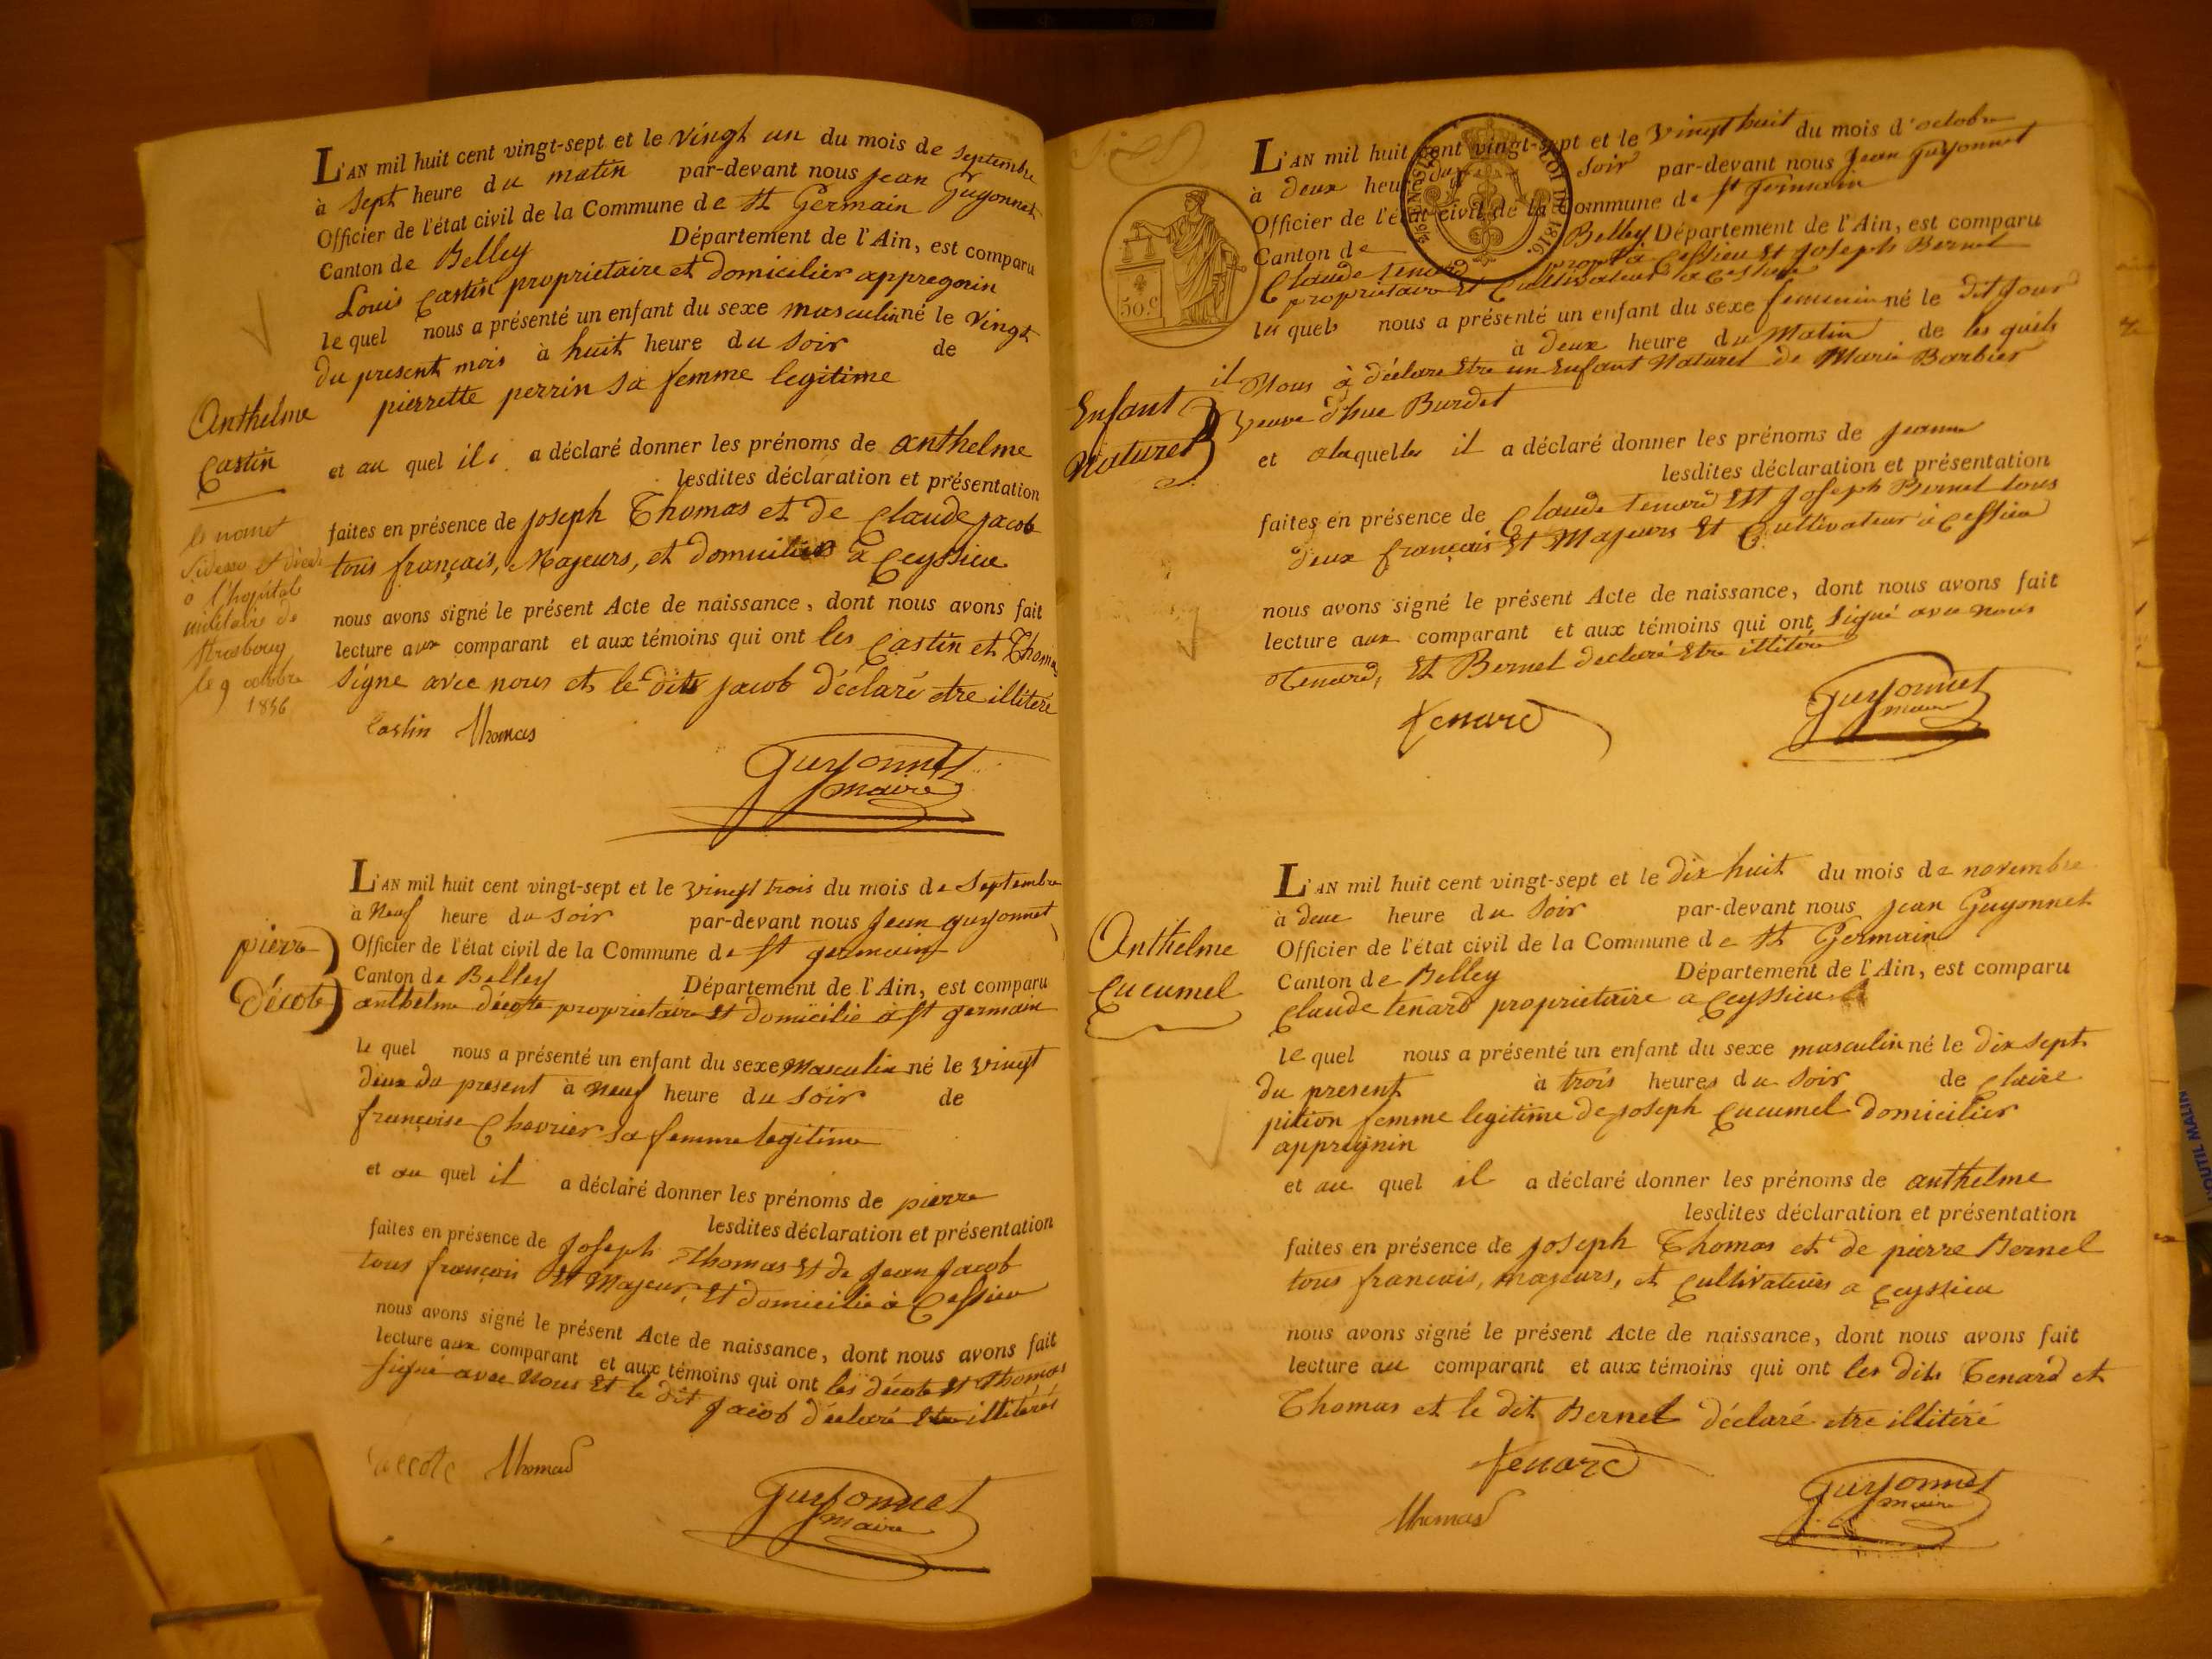 L'AN mil huit cent vingt-sept et le vingt un du mois de septembre
à sept heure du matin par-devant nous jean Guyonnet
Officier de l'état civil de la Commune de St Germain
Canton de Belley Département de l'Ain, est comparu
Louis Castin proprietaire et domicilier appregnin
le quel nous a présenté un enfant du sexe masculin né le vingt
du present mois à huit heure du soir de
pierrette perrin sa femme legitime
Anthelme
Castin
et au quel il a déclaré donner les prénoms de anthelme
lesdites déclaration et présentation
faites en présence de joseph Thomas et de Claude jacob
tous français, Majeurs, et domiciliés a Ceyssieu
le nomé
à l'hopital
militaire de
strasbourg
le 9 octobre
1856
nous avons signé le présent Acte de naissance, dont nous avons fait
lecture aux comparant et aux témoins qui ont les Castin et Thomas
signe avec nous et le dits jacob déclaré etre illitéré
Castin Thomas
Guyonnet
maire
L'AN mil huit cent vingt-sept et le vingt trois du mois de Septembre
à Neuf heure du soir par-devant nous Jean guyonnet
Officier de l'état civil de la Commune de st germain
Canton de Belley Département de l'Ain, est comparu
pierre
Décote
anthelme décotte proprietaire Et domicilié a st germain
le quel nous a présenté un enfant du sexe Masculin né le vingt
deux du present à neuf heure du soir de
françoise Chevrier sa femme legitime
et au quel il a déclaré donner les prénoms de pierre
lesdites déclaration et présentation
faites en présence de Joseph Thomas Et de Jean Jacob
tous françois Et Majeur, Et domicilié à Cessieu
nous avons signé le présent Acte de naissance, dont nous avons fait
lecture aux comparant et aux témoins qui ont les décote Et Thomas
signé avec Nous Et le dit Jacob déclaré Etre illitérés
Thomas
Guyonnet
maire
L'AN mil huit cent vingt-sept et le vingt huit du mois d'octobre
à deux heure du Soir par-devant nous Jean guyonnet
Officier de l'état civil de la Commune de st germain
Canton de Belley Département de l'Ain, est comparu
Claude tenard propr à Cessieu Et Joseph Bernel
proprietaire Et Cultivateur à Cessieu
LOI DE 1816
50.c
les quels nous a présenté un enfant du sexe femenin né le dit Jour
à deux heure du Matin de les quels
il Nous à déclare Etre un Enfant Naturel de Marie Barbier
veuve d'hue Burdet
Enfant
Naturel
et a laquelles il a déclaré donner les prénoms de Jeanne
lesdites déclaration et présentation
faites en présence de Claude tenard Et Joseph Bernel tous
deux français Et Majeurs Et Cultivateur à Cessieu
nous avons signé le présent Acte de naissance, dont nous avons fait
lecture aux comparant et aux témoins qui ont Signé avec nous
Tenard, Et Bernel declaré Etre illitéré
tenard
Guyonnet
maire
L'AN mil huit cent vingt-sept et le dix huit du mois de novembre
à deux heure du soir par-devant nous jean Guyonnet
Officier de l'état civil de la Commune de St Germain
Canton de Belley Département de l'Ain, est comparu
Anthelme
Cucumel
Claude tenard proprietaire a Ceyssieu
le quel nous a présenté un enfant du sexe masculin né le dix sept
du present à trois heures du soir de Claire
pition femme legitime de joseph Cucumel domicilier
appregnin
et au quel il a déclaré donner les prénoms de anthelme
lesdites déclaration et présentation
faites en présence de joseph Thomas et de pierre Bernel
tous francais, majeurs, et Cultivateurs a Ceyssieu
nous avons signé le présent Acte de naissance, dont nous avons fait
lecture au comparant et aux témoins qui ont les dits Tenard et
Thomas et le dit Bernel déclaré etre illitéré
tenard
Thomas
Guyonnet
maire
OUTIL MALIN